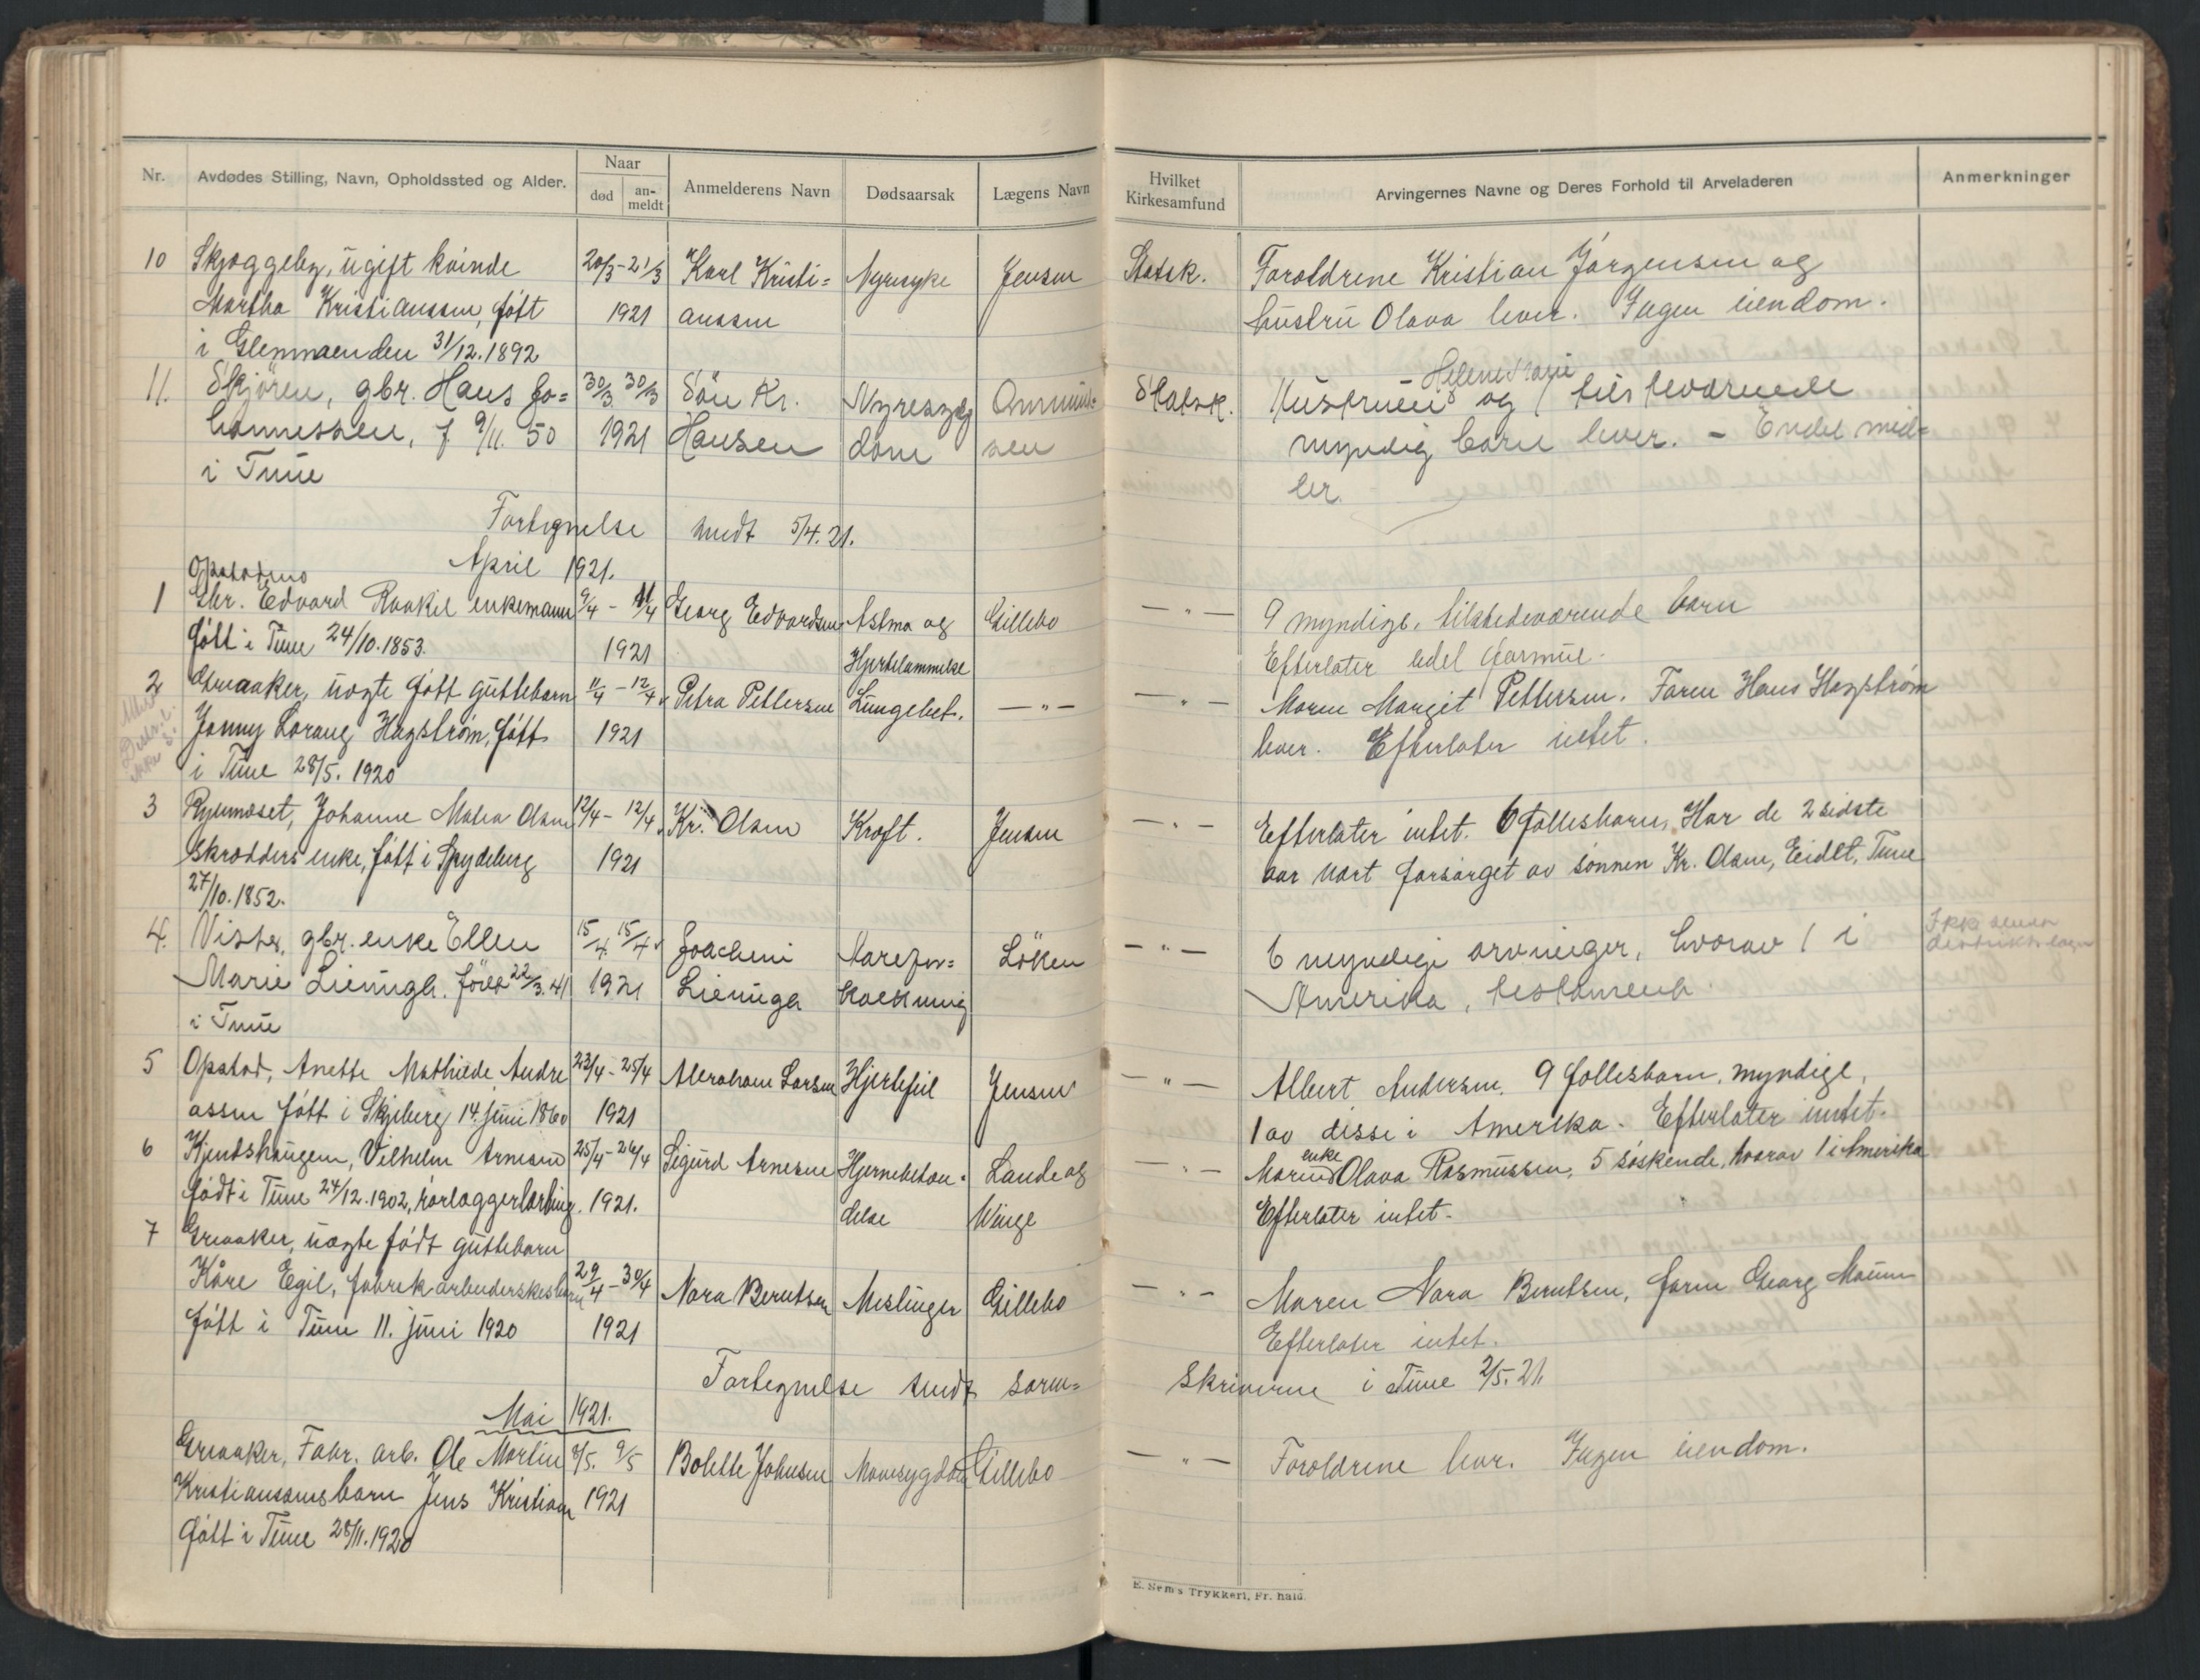 Nr. Avdødes Stilling, Navn, Opholdssted og Alder. Naar død an-meldt Anmelderens Navn Dødsaarsak Lægens Navn Hvilket Kirkesamfund Arvingernes Navne og Deres Forhold til Arveladeren Anmerkninger
10 Skjøggeby, ugift kvinde 20/3 - 21/3 Karl Kristi= Nyresyke Jensen Statsk. Forældrene Kristian Jørgensen og
Martha Kristianssen, født 1921 anssen hustru Olava lever. Ingen eiendom.
i Glemmen den 31/12. 1892
11. Skjøren, gbr. Hans Jo= 30/3 30/3 Søn Kr. Nyresyg Ommund= Statsk. Hustruen Helene Marie og 1 tilstedværende
hannessen, f. 9/11. 50 1921 Hansen dom sen myndig barn lever. - Endel mid=
i Tune ler.
Fortegnelse sendt 5/4. 21.
April 1921.
Opstad
1 Gbr. Edvard Raakil enkemann 9/4 - 11/4 Georg Edvardsen Astma og Gillebo — " — 9 myndige, tilstedeværende barn
født i Tune 24/10. 1853. 1921 Hjertelammelse Efterlater edel formue.
2 Greaaker, uægte født guttebarn 11/4 - 12/4 Petra Pettersen Lungebet. — " — — " — Moren Margit Pettersen. Faren Hans Hagstrøm
Jonny Lorang Hagstrøm, født 1921 lever. Efterlater intet.
i Tune 28/5. 1920
3 Ryenmoset, Johanne Olsen 12/4 - 12/4 Kr. Olsen Kræft. Jensen — " — Efterlater intet. 6 fællesbarn, Har de 2 sidste
skrædders enke, født i Spydeberg 1921 aar vært forsørget av sønnen Kr. Olsen, Eidet, Tune
27/10. 1852.
4. Vister, gbr. enke Ellen 15/4 15/4 Joachim Aarefor= Løken — " — 6 myndige arvinger, hvorav 1 i Ikke
Marie Lienugh. født 22/3. 41 1921 Lienugh kalkning Amerika, testament. distriktslæge
i Tune
5 Opstad, Anette Mathilde Andre 23/4 - 25/4 Abraham Larsen Hjertefeil Jensen — " — Albert Andersen. 9 fællesbarn, myndige,
assen født i Skjeberg 14. juni 1860 1921 1 av disse i Amerika. Efterlater intet.
6 Kjendshaugen, Vilhelm Arnesen 25/4 - 26/4 Sigurd Arnesen Hjernebetæn- Lande og — " — Moren enke Olava Rasmussen, 5 søskende, hvorav 1 i Amerika
født i Tune 24/12. 1902, rørlæggerlærling. 1921. delse Winge Efterlater intet.
7 Greaaker, uægte født guttebarn
Kåre Egil, fabrekarbeiderskes barn 29/4 - 30/4 Nora Berntsen Meslinger Gillebo — " — Moren Nora Berntsen, faren Georg
født i Tune 11. juni 1920 1921 Efterlater intet.
Fortegnelse sendt soren= skriveren i Tune 2/5. 21.
Mai 1921.
Greaaker, Fabr. arb. Ole Martin 8/5. 9/5 Bolette Johnsen Mavesygdom Gillebo — " — Forældrene lever. Ingen eiendom.
Kristianssens barn Jens Kristian 1921
født i Tune 28/11. 1920
E. Sem's Trykkeri, Fr.hald.